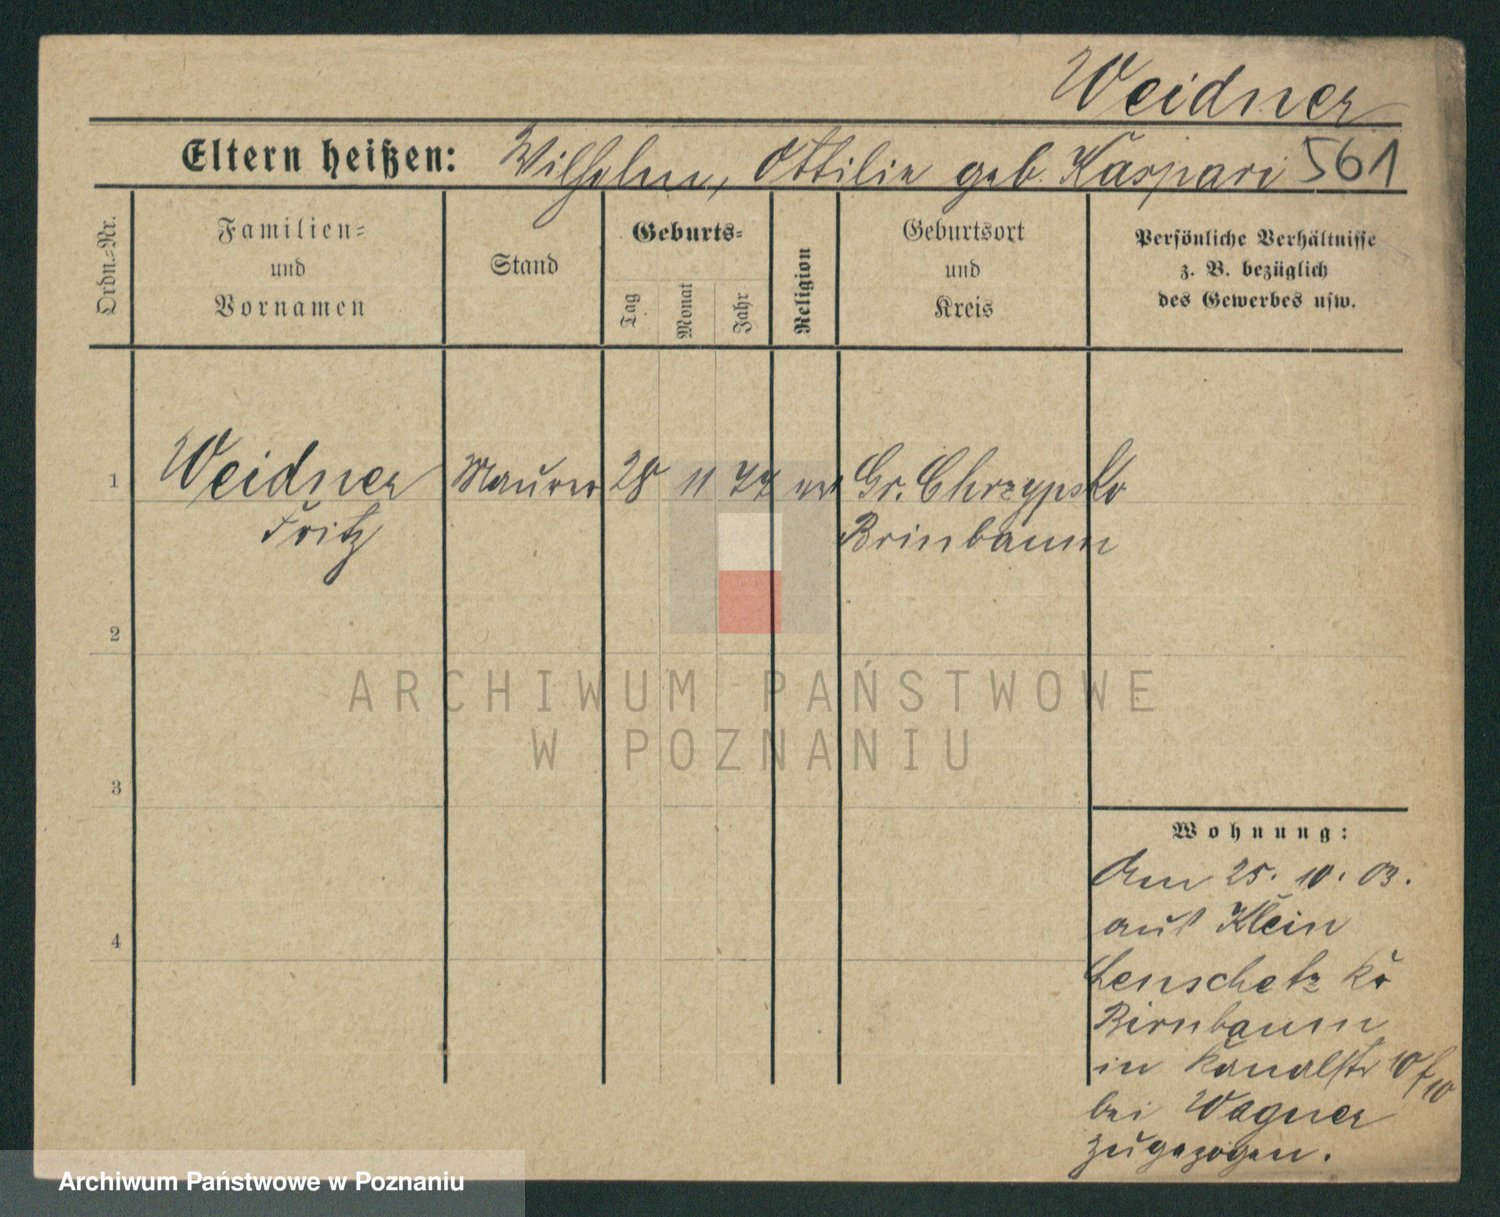 Weidner
Eltern heißen: Wilhelm, Ottilie geb. Kaspari 561
Ordn.=Nr.
Familien=
und
Vornamen
Stand
Geburts=
Tag
Monat
Jahr
Religion
Geburtsort
und
Kreis
Persönliche Verhältnisse
z. B. bezüglich
des Gewerbes usw.
1 Weidner Maurer 28 11 77 ev Gr. Chrzypsko
Fritz Brinbaum
2
3
4
ARCHIWUM PAŃSTWOWE
W POZNANIU
Wohnung:
Am 25. 10. 03.
aus Klein
Lenschetz Kr
Birnbaum
in Kanalstr
bei Wagner
zugezogen.
Archiwum Państwowe w Poznaniu